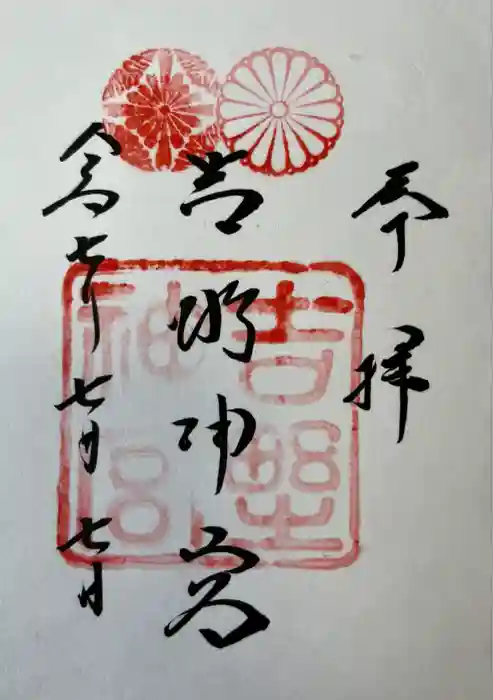 奉拝
吉野神宮
令和七年七月七日
吉野神宮